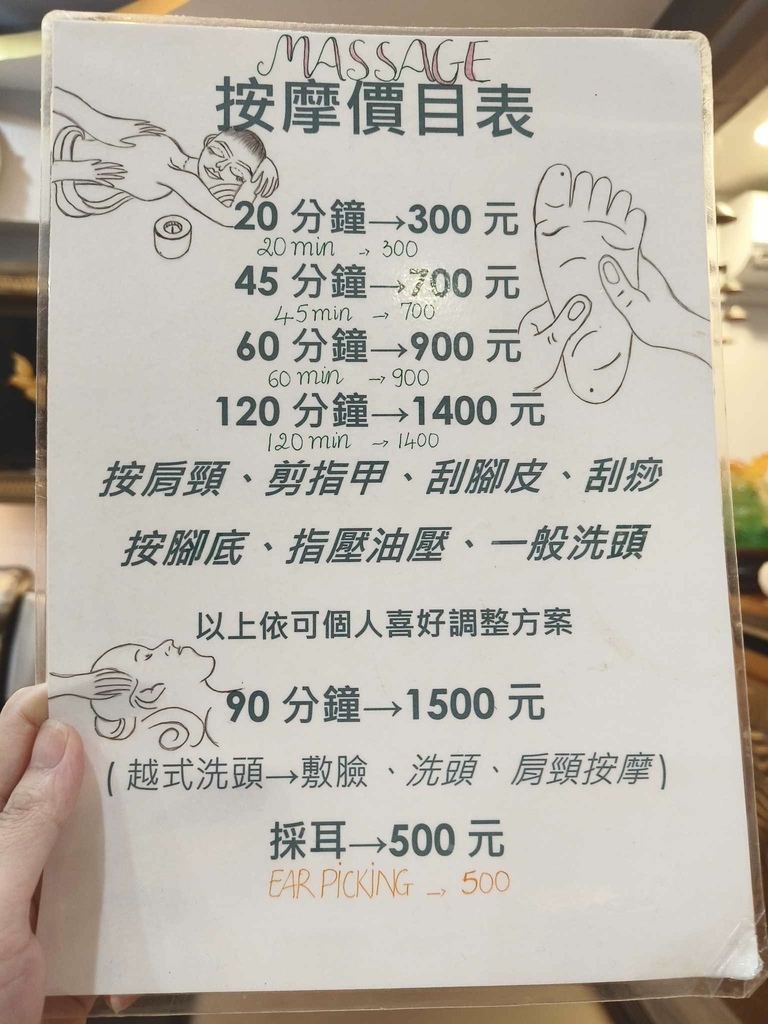 MASSAGE
按摩價目表
20 分鐘→300 元
20 min → 300
45 分鐘→700 元
45 min → 700
60 分鐘→900 元
60 min → 900
120 分鐘→1400 元
120 min → 1400
按肩頸、剪指甲、刮腳皮、刮痧
按腳底、指壓油壓、一般洗頭
以上依可個人喜好調整方案
90 分鐘→1500 元
(越式洗頭→敷臉、洗頭、肩頸按摩)
採耳→500 元
EAR PICKING → 500